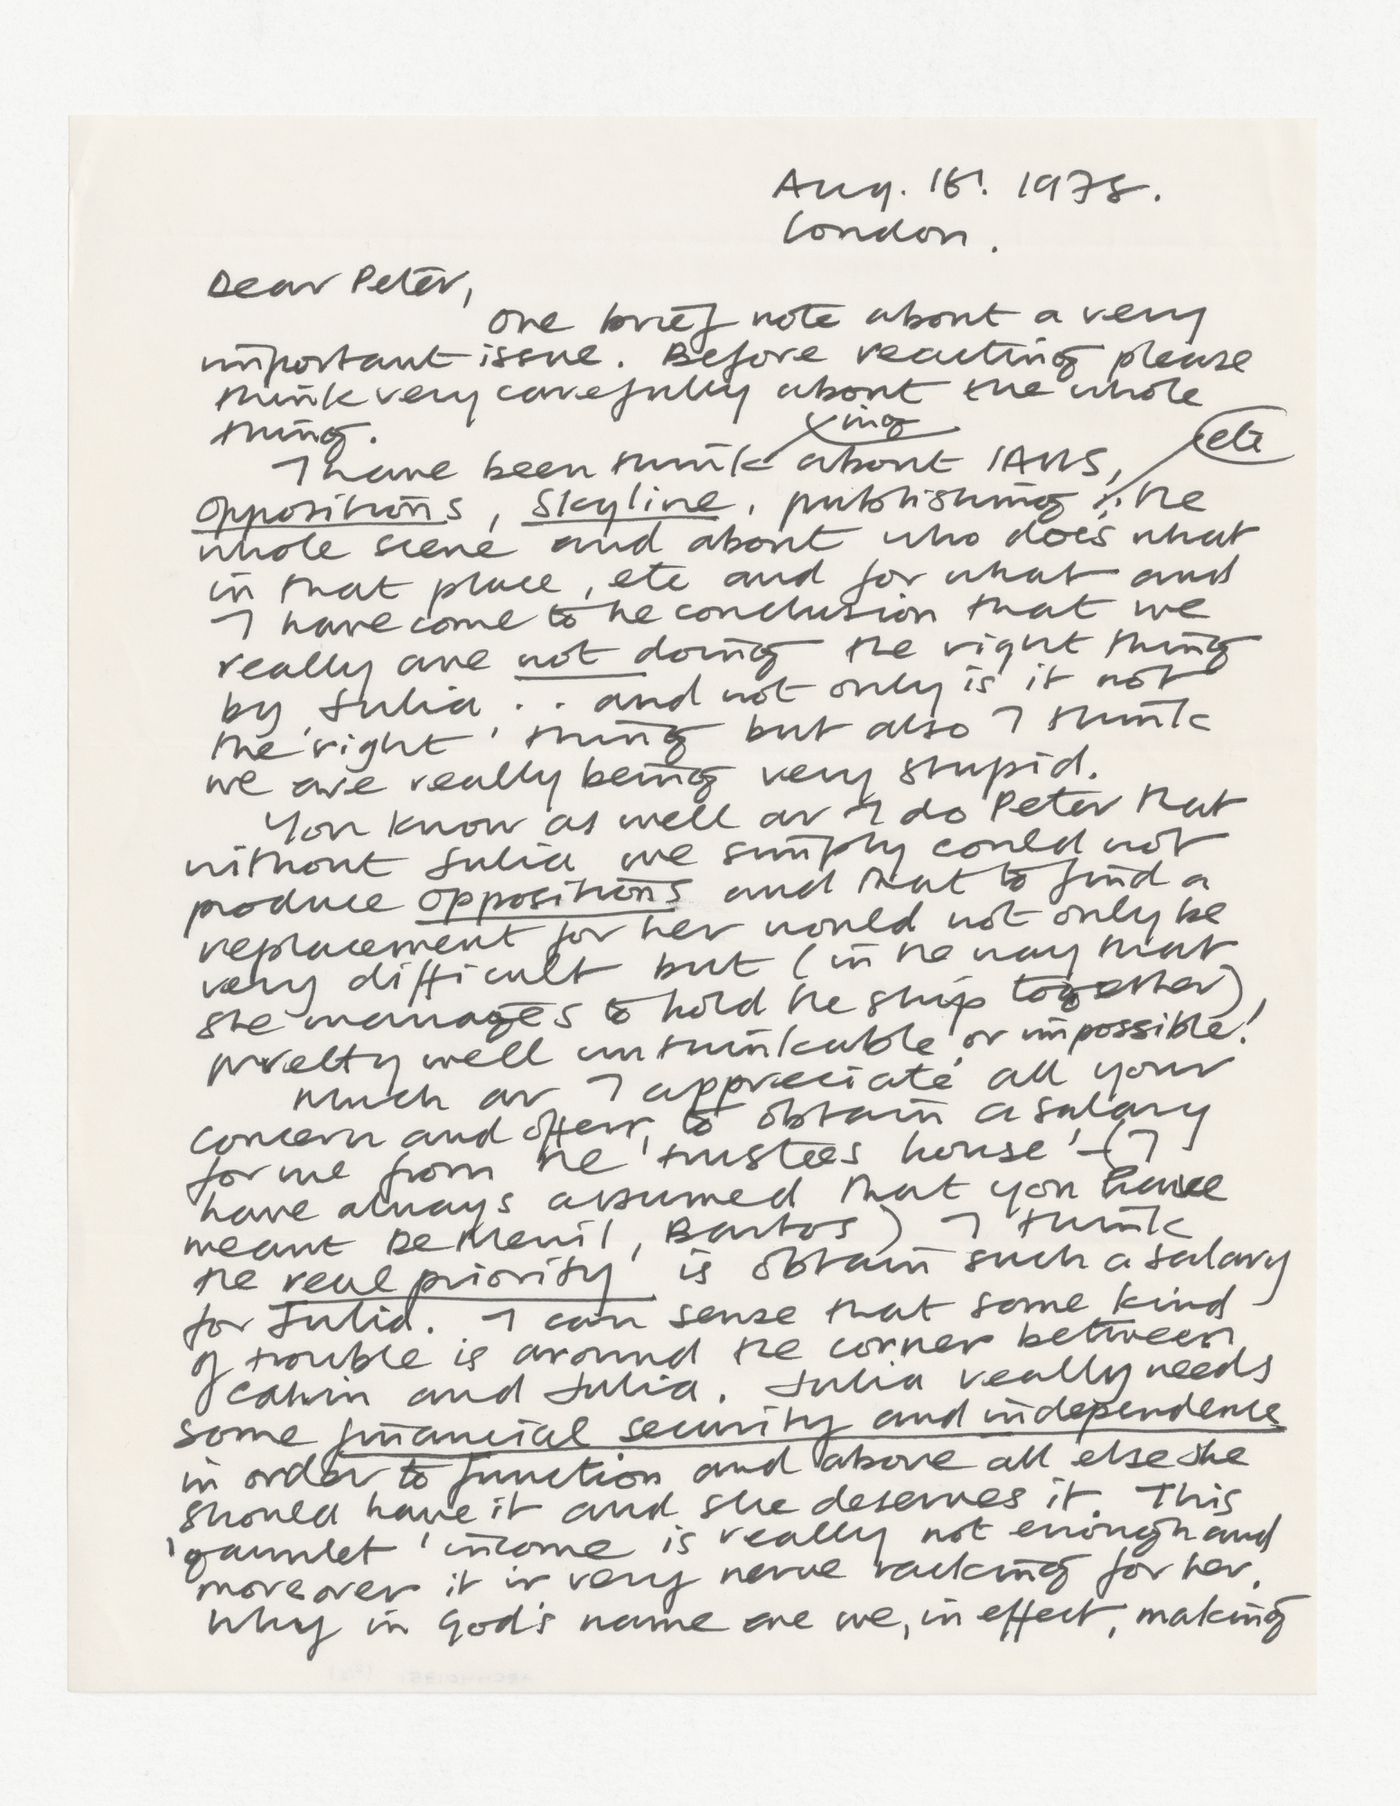 Aug. 16! 1978.
London.
Dear Peter,
One brief note about a very
important issue. Before reacting please
think very carefully about the whole
thing.
I have been thinking about IAUS, etc
Oppositions, Skyline, publishing .. the
whole scene and about who does what
in that place, etc and for what and
I have come to the conclusion that we
really are not doing the right thing
by Julia .. and not only is it not
the 'right' thing but also I think
we are really being very stupid.
You know as well as I do Peter that
without Julia we simply could not
produce Oppositions and that to find a
replacement for her would not only be
very difficult but (in the way that
she manages to hold the ship together),
pretty well unthinkable or impossible!
Much as I appreciate all your
concern and offers, to obtain a salary
for me from the 'trustees house' – (I
have always assumed that you have
meant De Menil, Bartos) I think
the real priority is obtain such a salary
for Julia. I can sense that some kind
of trouble is around the corner between
Calvin and Julia. Julia really needs
some financial security and independence
in order to function and above all else she
should have it and she deserves it. This
'gaunlet' income is really not enough and
moreover it is very nerve racking for her.
Why in God's name are we, in effect, making